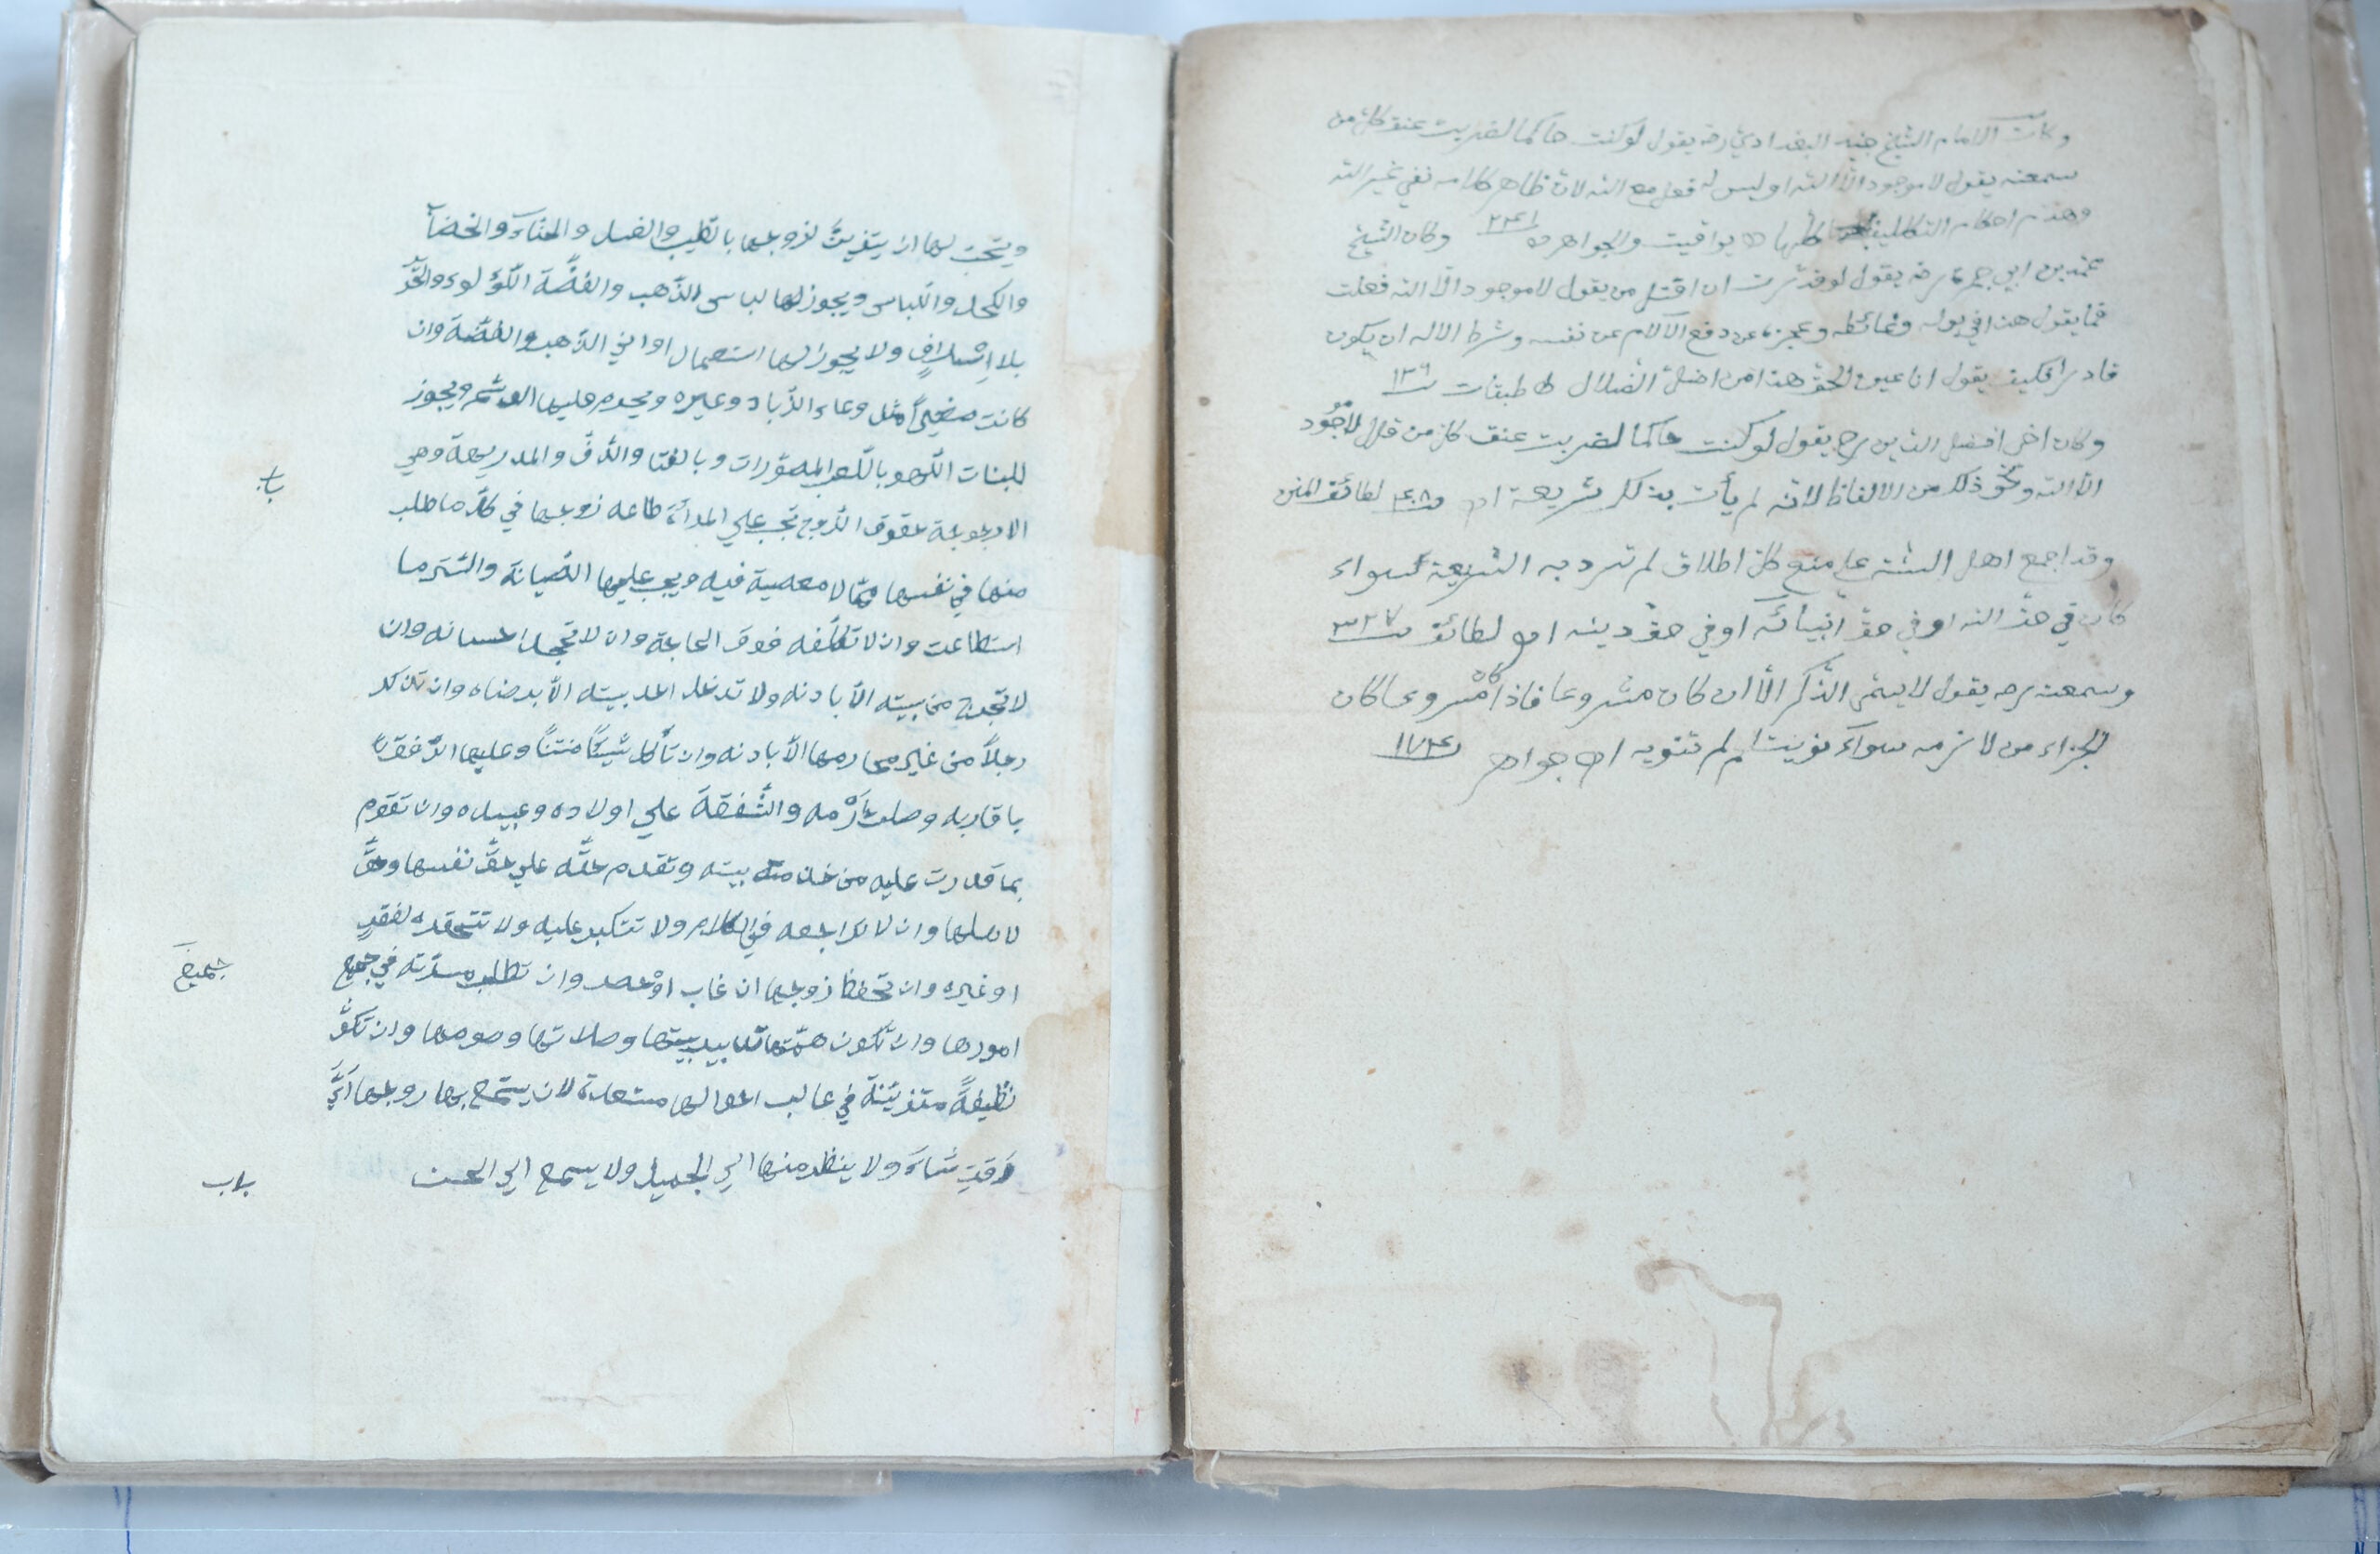 وكان الامام الشيخ جنيد البغدادي رضه يقول لو كنت حاكما لضربت عنق كل من
سمعته يقول لا موجود الا الله او ليس له فعل مع الله لان ظاهر كلامه نفي غير الله
وهدم احكام التكاليف كلها اه يواقيت والجواهر وكان الشيخ
محمد بن ابي جمرة رضه يقول لو قدرت ان اقتل من يقول لا موجود الا الله فعلت
فما يقول هذا في بوله وغائطه وعجزه عن دفع الآلام عن نفسه وشرط الاله ان يكون
قادرا فكيف يقول انا عين الحق هذا من اضل الضلال اه طبقات ١٣٦
وكان اخي افضل الدين رح يقول لو كنت حاكما لضربت عنق كل من قال لا موجود
الا الله ونحو ذلك من الالفاظ لانه لم يأت بذلك شريعة اه لطائف المنن
وقد اجمع اهل السنة على منع كل اطلاق لم ترد به الشريعة سواء
كان في حق الله او في حق انبيائه او في حق دينه اه لطائف ٣٢٧
وسمعته رحه يقول لا يسمى الذكر الا ان كان مشروعا فاذا كان مشروعا كان
الجزاء من لازمه سوآء نويت ام لم تنويه اه جواهر ١٧٤
ويستحب لها ان يتزين لزوجها بالطيب والغسل والحنآء والخضاب
والكحل واللباس ويجوز لها لباس الذهب والفضة اللؤلوء والحرير
بلا اسراف ولا يجوز لها استعمال اواني الذهب والفضة وان
كانت صغيرا مثل وعاء الزباد وغيره ويحرم عليها الوشم ويجوز
للبنات اللهو باللعب المصورات وبالغنا والدف والمدريهة وهي
الارجوحة حقوق الزوج تجب علي المرأة طاعه زوجها في كل ما طلب
منها في نفسها مما لا معصية فيه ويجب عليها الصيانة والستر ما
استطاعت وان لا تكلفه فوق الحاجة وان لا تجحد احسانه وان
لا تخرج من بيته الا باذنه ولا تدخل احد بيته الا برضاه وان تذكر
رجلا من غير محارمها الا باذنه وان تأكل شيئا منتنا وعليها الرفق
باقاربه وصلت رحمه والشفقة علي اولاده وعبيده وان تقوم
بما قدرت عليه من خدمته بيته وتقدم حقه علي حق نفسها وحق
لاهلها وان لا تراجعه في الكلام ولا تتكبر عليه ولا تتحقره لفقر
او غيره وان تحفظ زوجها ان غاب او حضر وان تطلب مسرته في جميع
جميع
امورها وان تكون همتها تدبير بيتها وصلاتها وصومها وان تكون
نظيفة متزينة في غالب احوالها مستعدة لان يستمتع بها زوجها اي
وقت شآء ولا ينظر منها الي الجميل ولا يسمع الي الحسن
باب